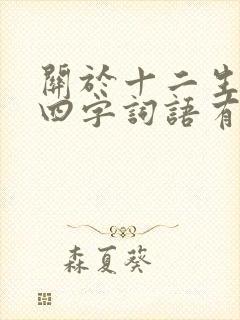 關於十二生
四字詞語有
森夏葵